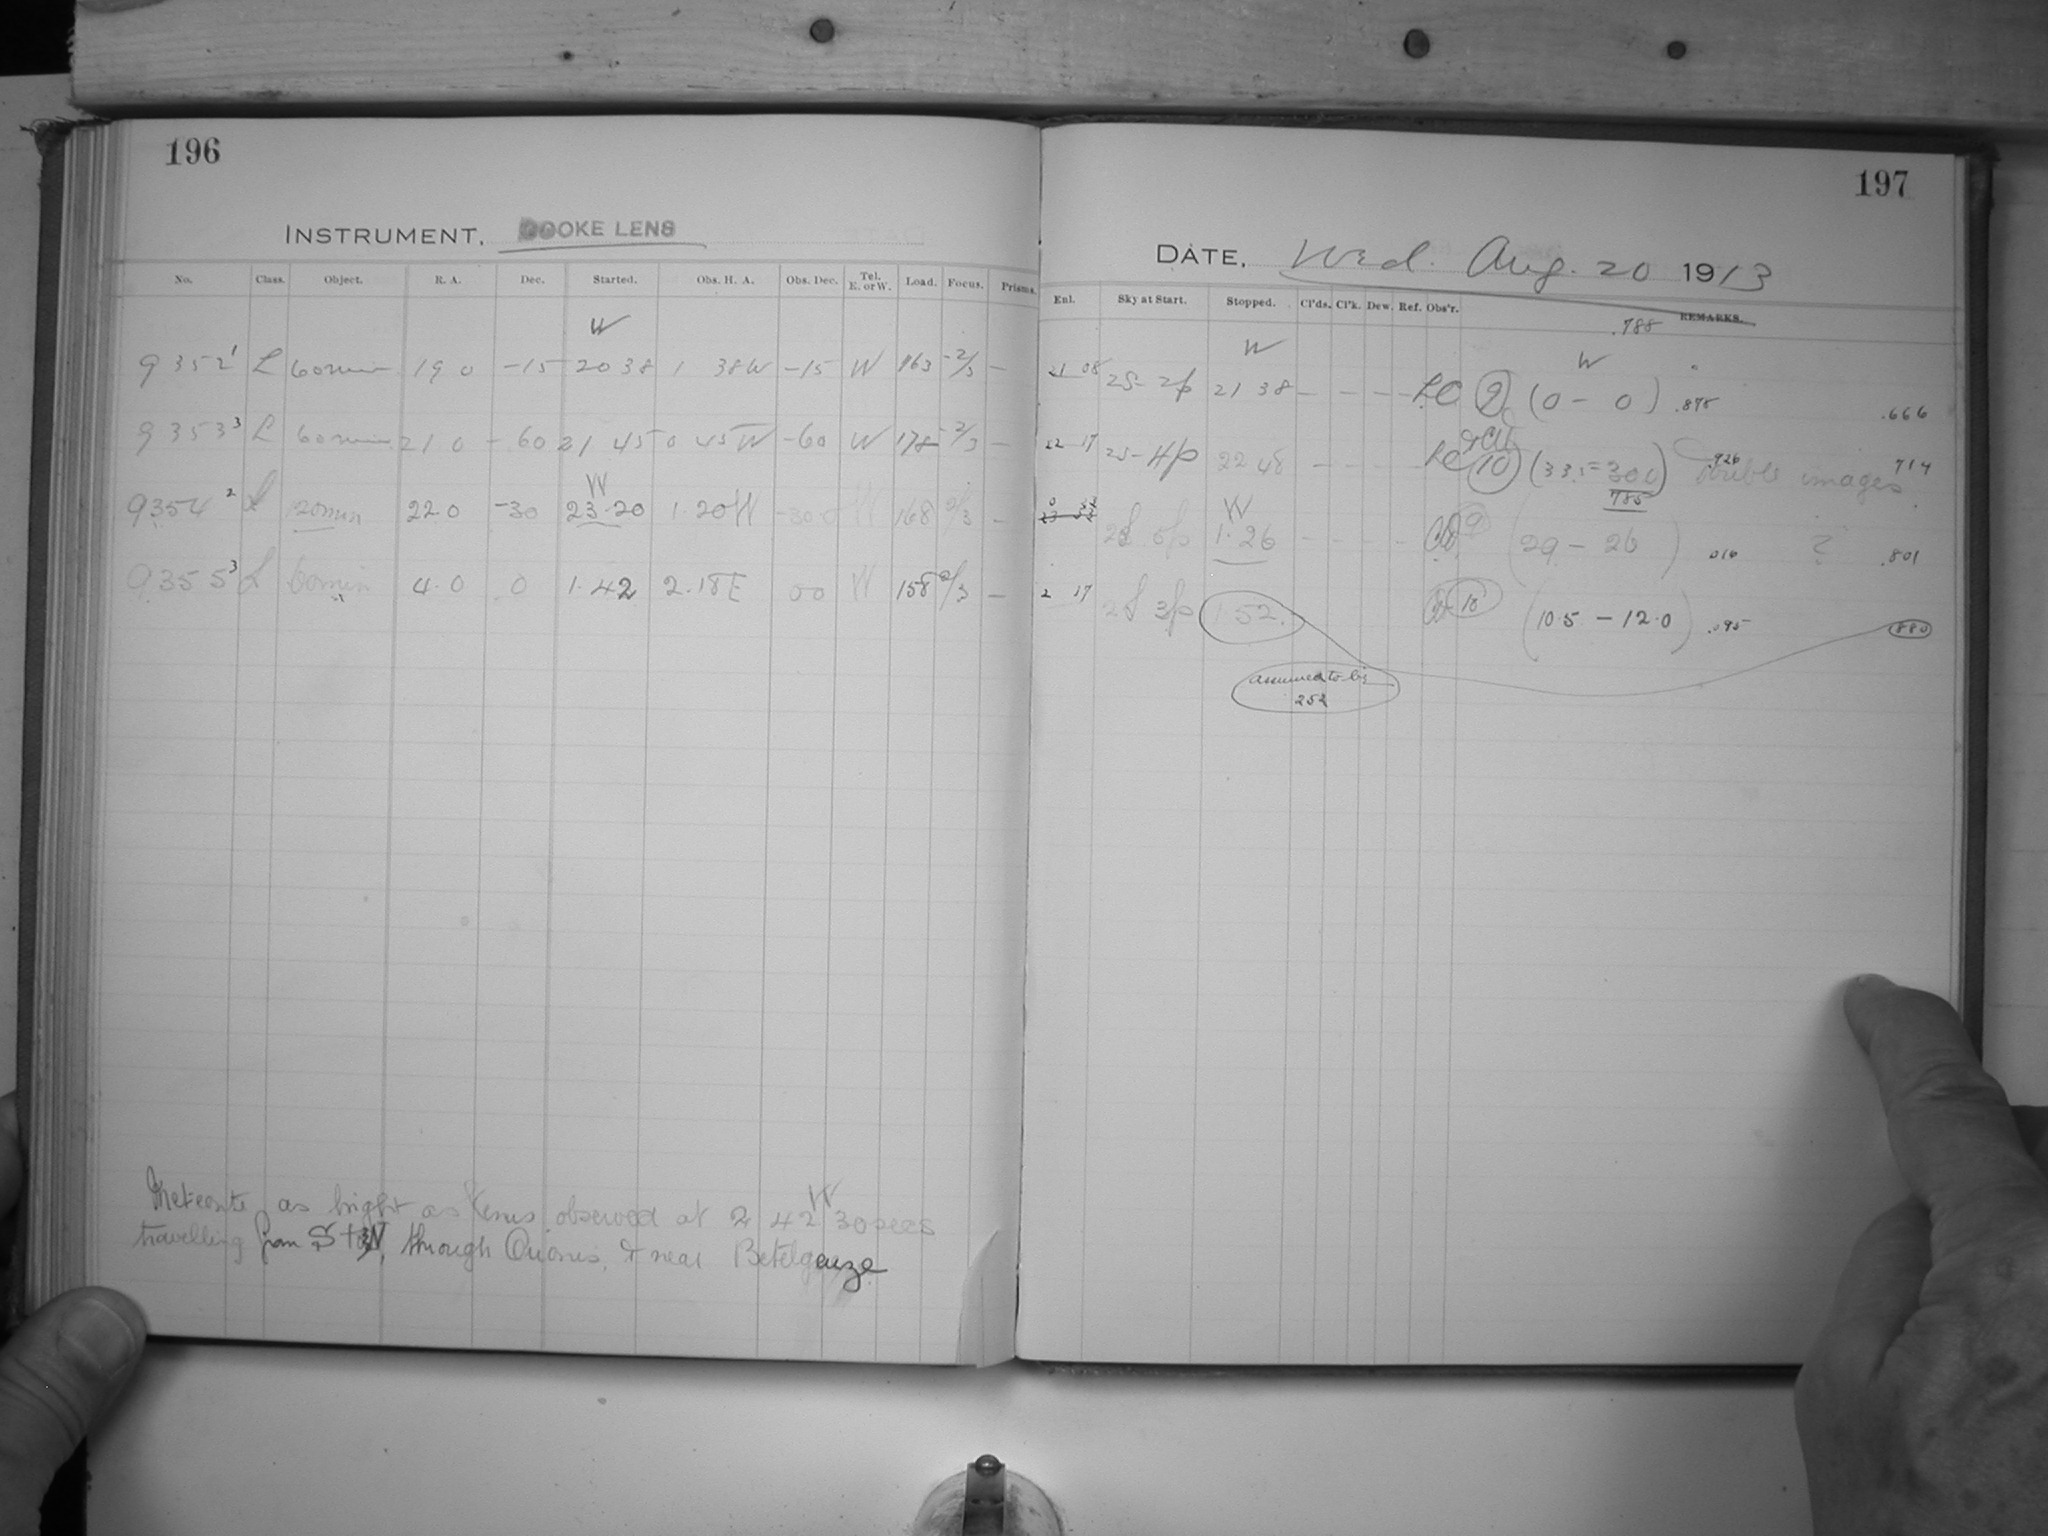 196
INSTRUMENT, COOKE LENS
No. Class. Object. R. A. Dec. Started. Obs. H. A. Obs. Dec. Tel. E. or W. Load. Focus. Prisms.
W
9352 1 L 60 min 19 0 -15 20 38 1 38 W -15 W 163 -2/3 —
9353 3 L 60 min 21 0 -60 21 45 0 45 W -60 W 178 -2/3 —
W
9354 2 L 120 min 22 0 -30 23.20 1.20 W -30 0 W 168 2/3 —
9355 3 L 60 min 4.0 0 1.42 2.18 E 00 W 158 2/3 —
Meteorite as bright as Venus observed at 2 42 W 30 secs
travelling from S to N, through Orionis, & near Betelgeuze
197
DATE, Wed. Aug. 20 1913
Enl. Sky at Start. Stopped. Cl'ds. Cl'k. Dew. Ref. Obs'r. REMARKS.
.788
W W
21 08 2s- 2p 21 38 — — — — LC 9 (0 - 0) .875 .666
22 17 2s- 4p 22 48 — — — LC 10 (33.5 = 30.0) .926 double images 714
785
W
1.26 - - - - (29 - 26) .016 ? .801
2 17 3p 1 52. 10 (10.5 - 12.0) .095 880
assumed to be
252